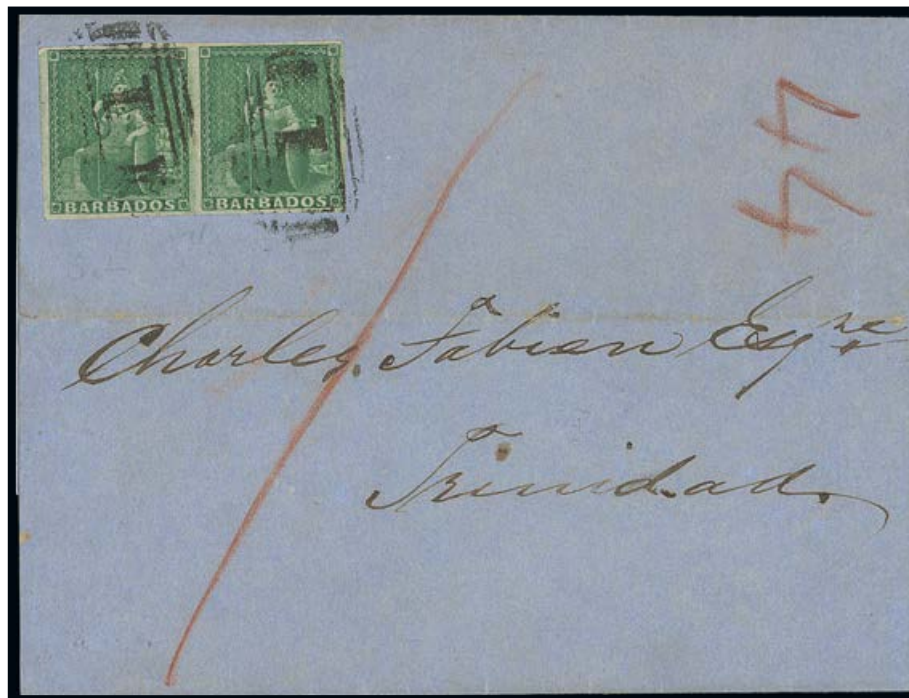 BARBADOS BARBADOS
1 1
44
Charles Fabien Esqre
Trinidad.